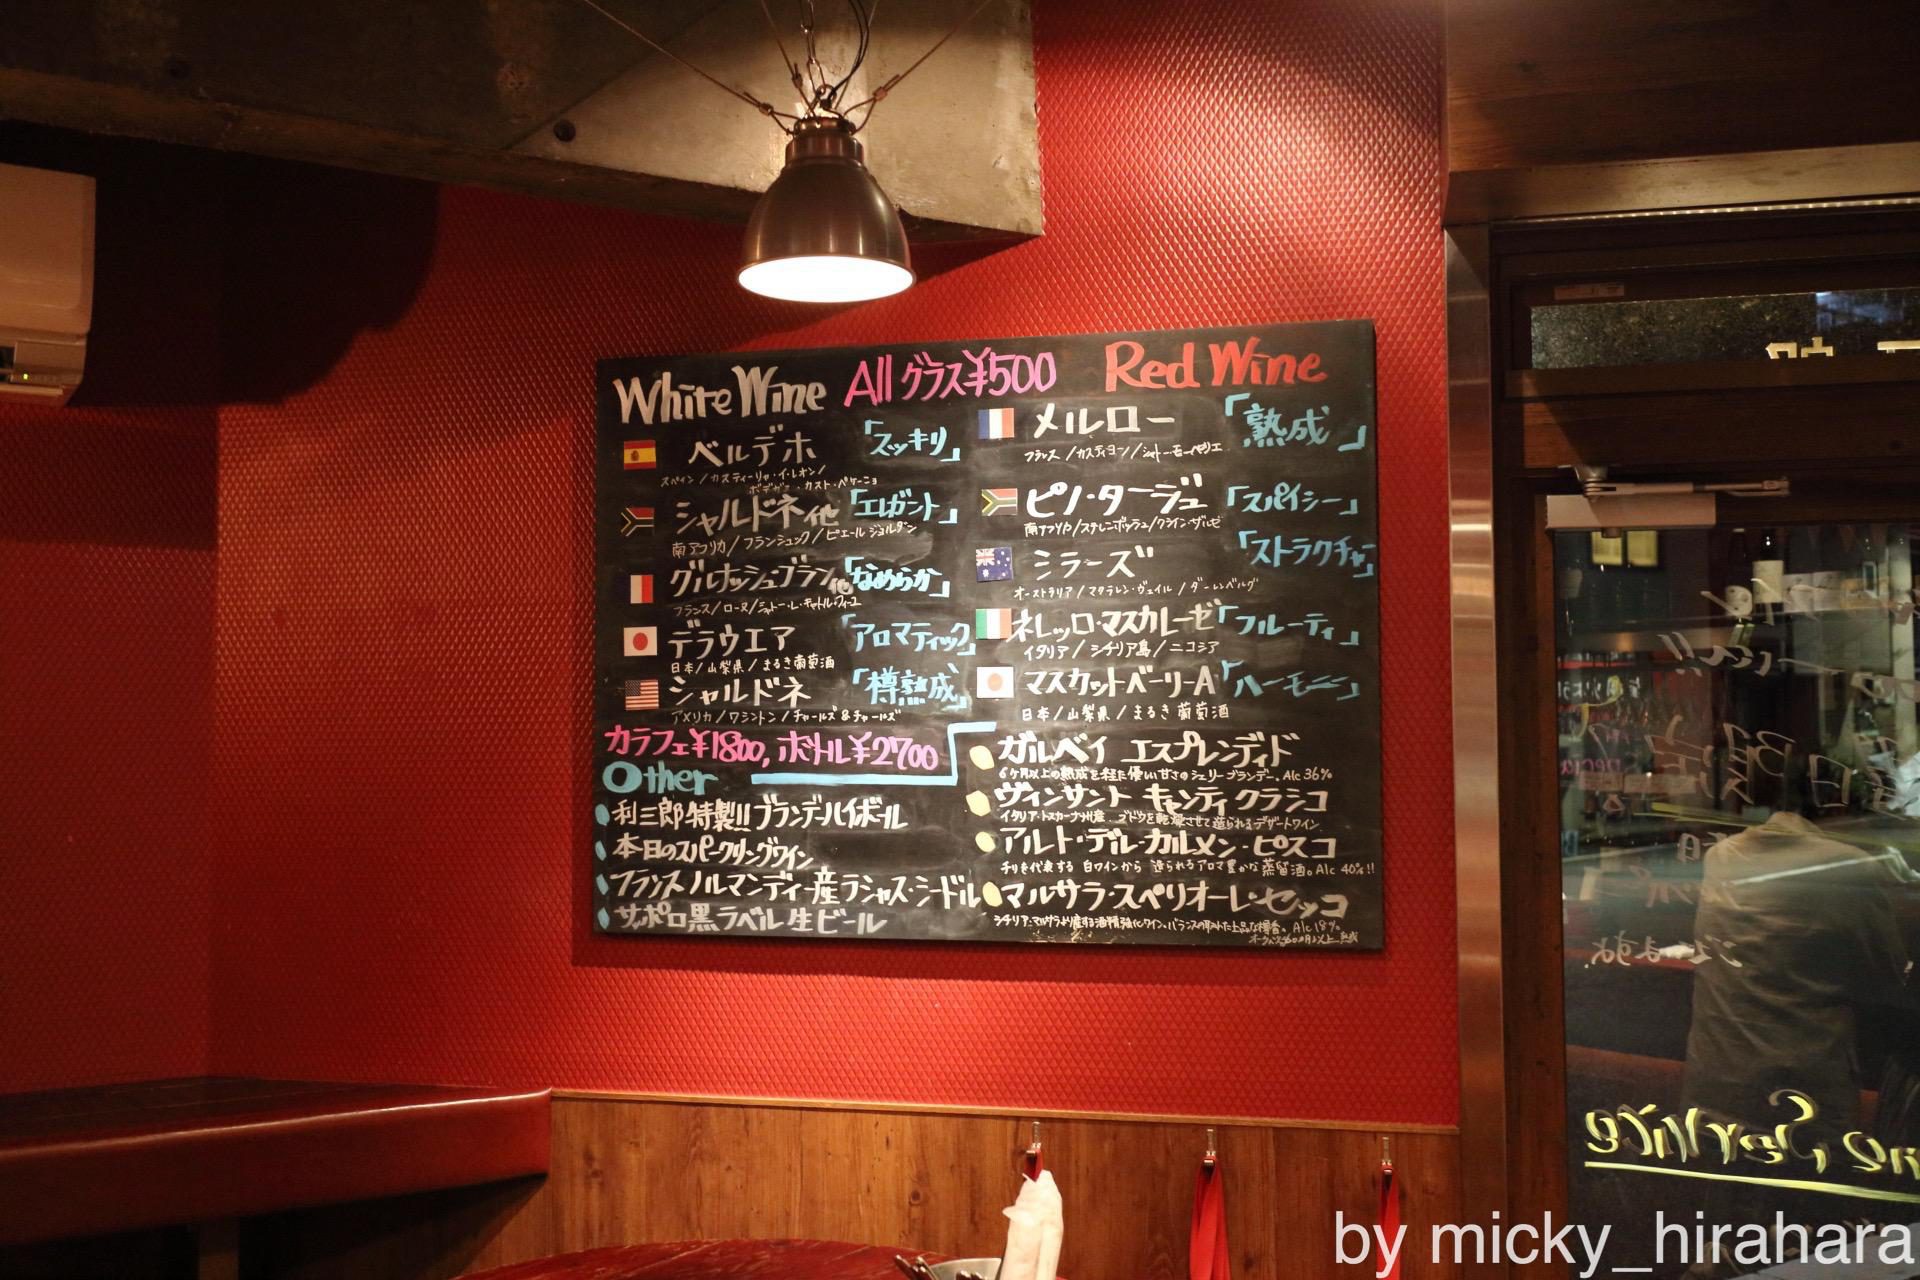 White Wine All グラス¥500 Red Wine
ベルデホ 「スッキリ」
スペイン/カスティーリャ・イ・レオン/
シャルドネ他 「エレガント」
南アフリカ/フランシュック/ピエール ジョルダン
グルナッシュ・ブラン他 「なめらか」
フランス/ローヌ/シャトー・レ・キャトル・フィーユ
デラウエア 「アロマティック」
日本/山梨県/まるき葡萄酒
シャルドネ 「樽熟成」
アメリカ/ワシントン/チャールズ&チャールズ
カラフェ¥1800, ボトル¥2700
メルロー 「熟成」
フランス/カスティヨン/シャトー・モーペリエ
ピノ・タージュ 「スパイシー」
南アフリカ/ステレンボッシュ/クライン・ザルゼ
シラーズ 「ストラクチャー」
オーストラリア/マクラレン・ヴェイル/ダーレンベルグ
ネレッロ・マスカレーゼ 「フルーティ」
イタリア/シチリア島/ニコシア
マスカットベーリーA 「ハーモニー」
日本/山梨県/まるき葡萄酒
Other
利三郎特製!!ブランデーハイボール
本日のスパークリングワイン
フランス ノルマンディー産ラシャス・シードル
サッポロ黒ラベル生ビール
ガルベイ エスプレンディド
6ヶ月以上の熟成を経た優しい甘さのシェリーブランデー。Alc 36%
ヴィンサント キャンティ クラシコ
イタリア・トスカーナ州産。ブドウを乾燥させて造られるデザートワイン
アルト・デル・カルメン・ピスコ
チリを代表する 白ワインから 造られるアロマ豊かな蒸留酒。Alc 40%!!
マルサラ・スペリオーレ・セッコ
シチリア、マルサラより産する酒精強化ワイン。バランスの取れた上品な樽香。Alc 18%
ne Service
by micky_hirahara